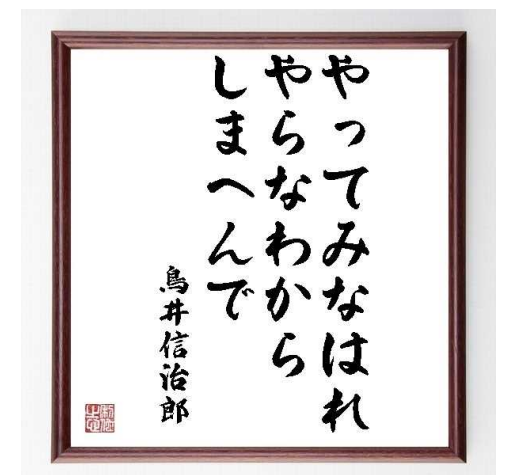 やってみなはれ
やらなわから
しまへんで
鳥井信治郎